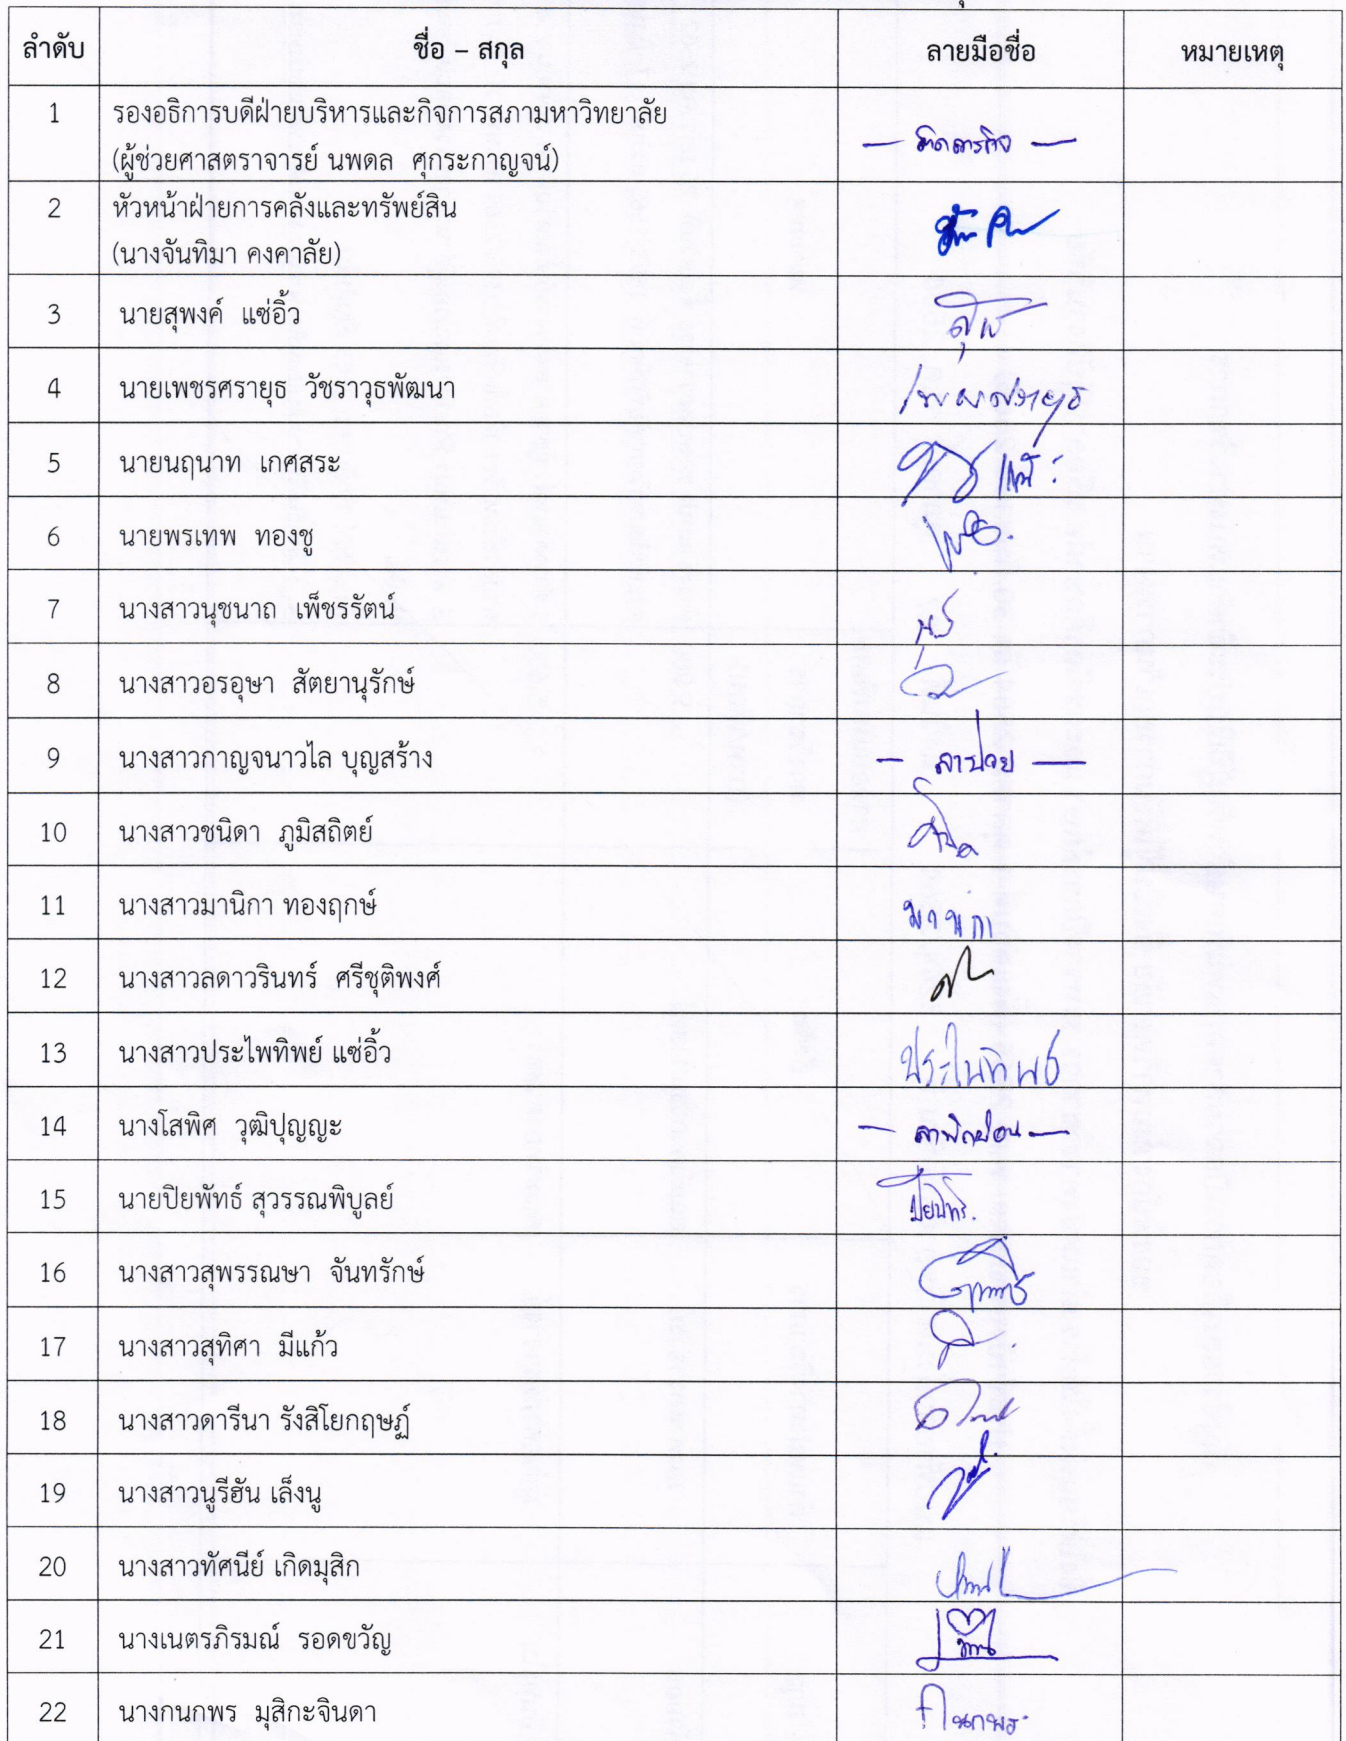 ลำดับ ชื่อ – สกุล ลายมือชื่อ หมายเหตุ
1 รองอธิการบดีฝ่ายบริหารและกิจการสภามหาวิทยาลัย
(ผู้ช่วยศาสตราจารย์ นพดล ศุกระกาญจน์) — ติดภารกิจ —
2 หัวหน้าฝ่ายการคลังและทรัพย์สิน
(นางจันทิมา คงคาลัย)
3 นายสุพงค์ แซ่อิ้ว
4 นายเพชรศรายุธ วัชราวุธพัฒนา เพชรศรายุธ
5 นายนฤนาท เกศสระ
6 นายพรเทพ ทองชู
7 นางสาวนุชนาถ เพ็ชรรัตน์
8 นางสาวอรอุษา สัตยานุรักษ์
9 นางสาวกาญจนาวไล บุญสร้าง — ลาป่วย —
10 นางสาวชนิดา ภูมิสถิตย์
11 นางสาวมานิกา ทองฤกษ์ มานิกา
12 นางสาวลดาวรินทร์ ศรีชุติพงศ์
13 นางสาวประไพทิพย์ แซ่อิ้ว ประไพทิพย์
14 นางโสพิศ วุฒิปุญญะ — ลาพักผ่อน —
15 นายปิยพัทธ์ สุวรรณพิบูลย์
16 นางสาวสุพรรณษา จันทรักษ์
17 นางสาวสุทิศา มีแก้ว
18 นางสาวดารีนา รังสิโยกฤษฎ์
19 นางสาวนูรีฮัน เล็งนู
20 นางสาวทัศนีย์ เกิดมุสิก
21 นางเนตรภิรมณ์ รอดขวัญ
22 นางกนกพร มุสิกะจินดา กนกพร